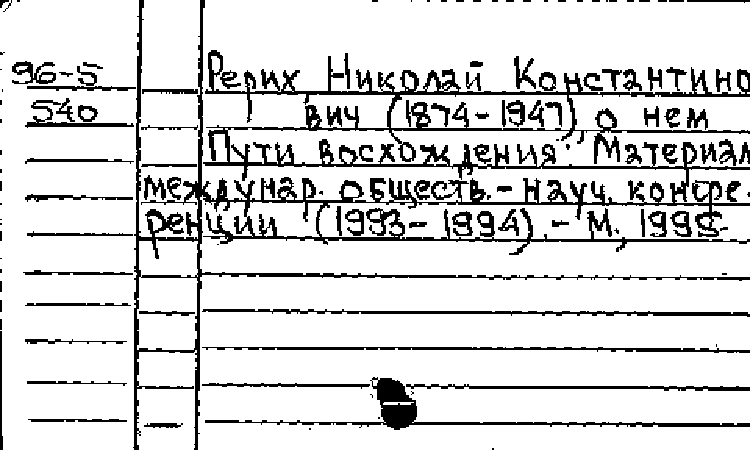 96-5 Рерих Николай Константино
540 вич (1874-1947) о нем
Пути восхождения: Материал
междунар. обществ.-науч. конфе-
ренции (1993-1994).-М., 1995-